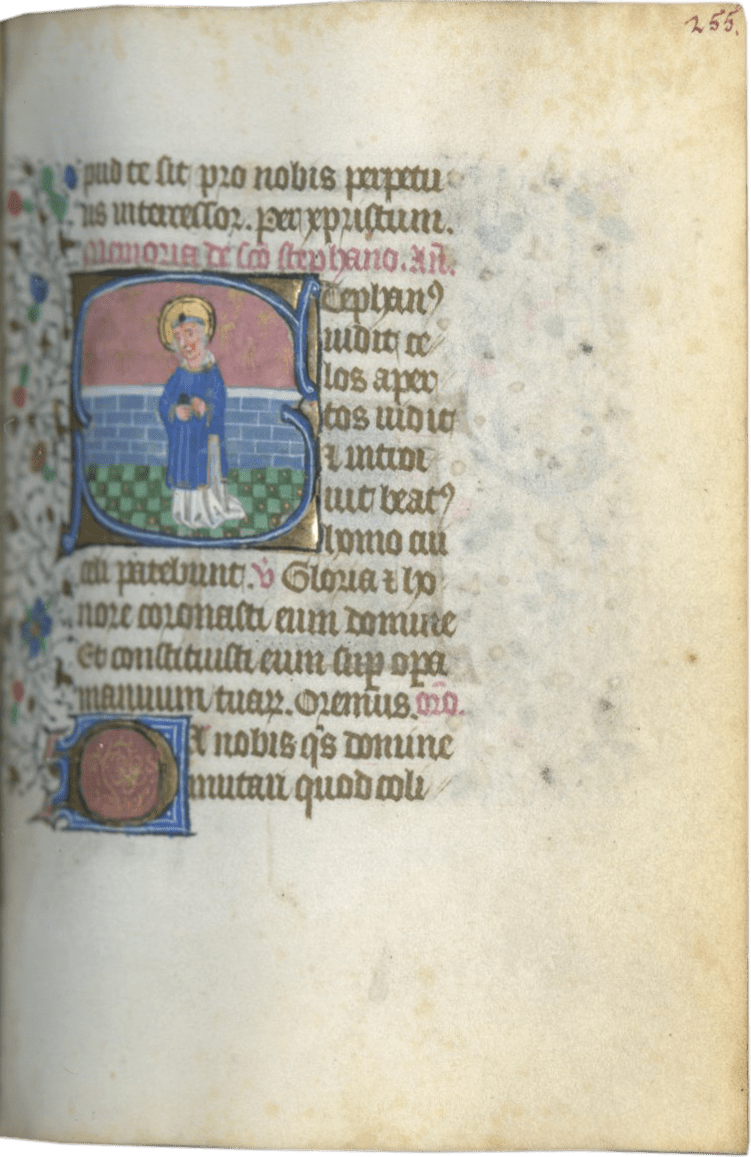 255.
pud te sit pro nobis perpetu
us intercessor. per xpristum.
Memoria de sco stephano. an.
Stephanꝯ
uidit ce
los aper
tos uidit
⁊ introi
uit beatꝯ
homo cui
celi patebunt. v Gloria ⁊ ho
nore coronasti eum domine
Et constituisti eum sup opa
manuum tuaꝝ. Oremus. oro.
Da nobis qs domine
imitari quod coli